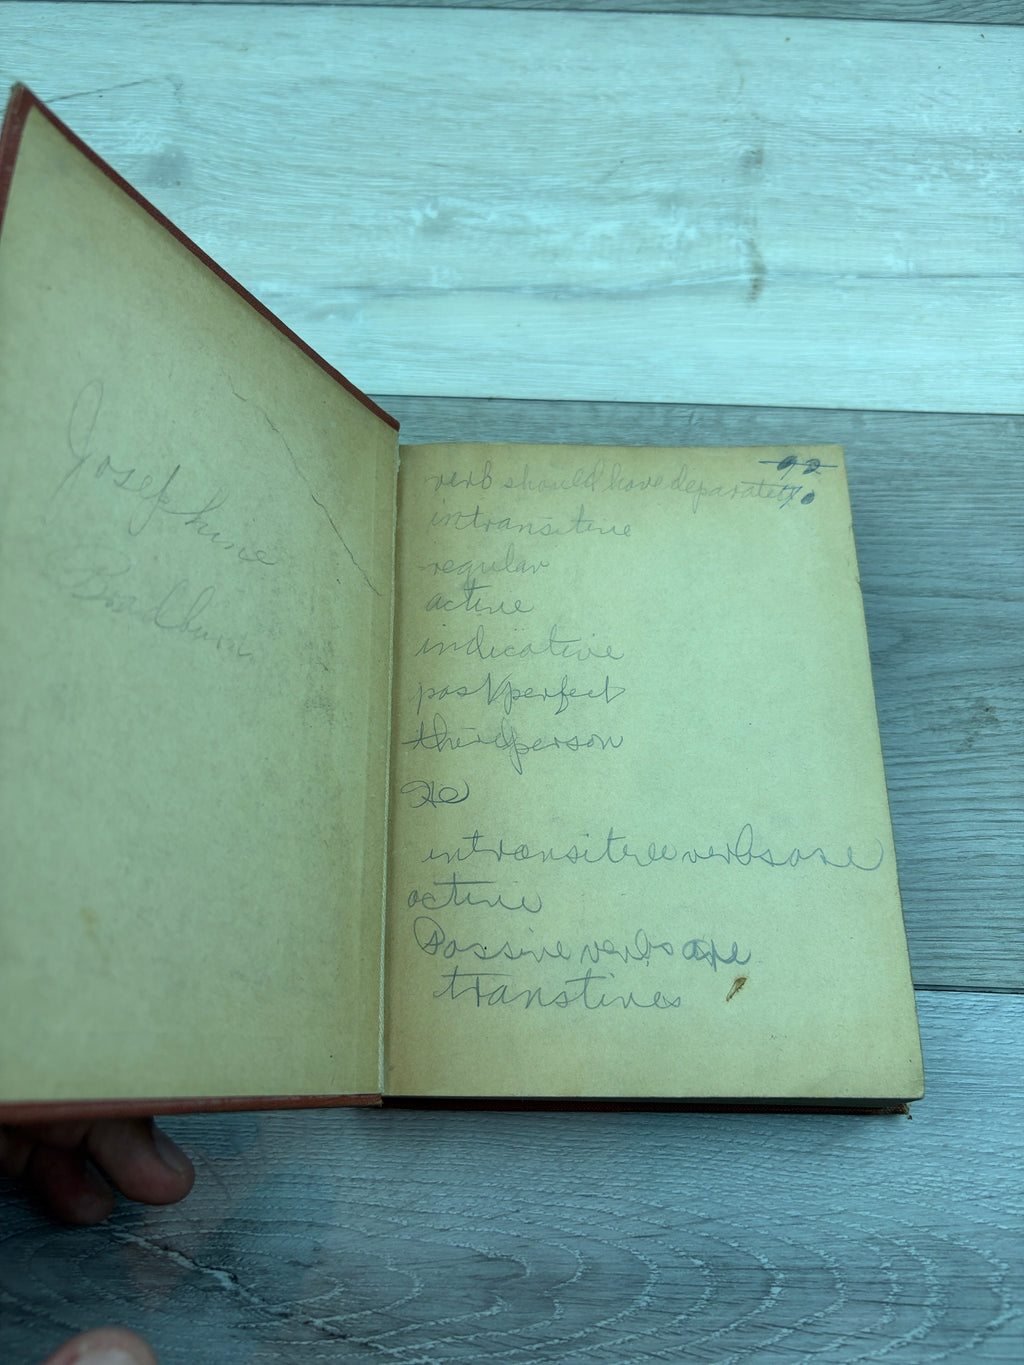 Josephine
verb should have
intransitive
regular
active
indicative
past perfect
third person
He
intransitive verbs are
active
Passive verbs are
transtives